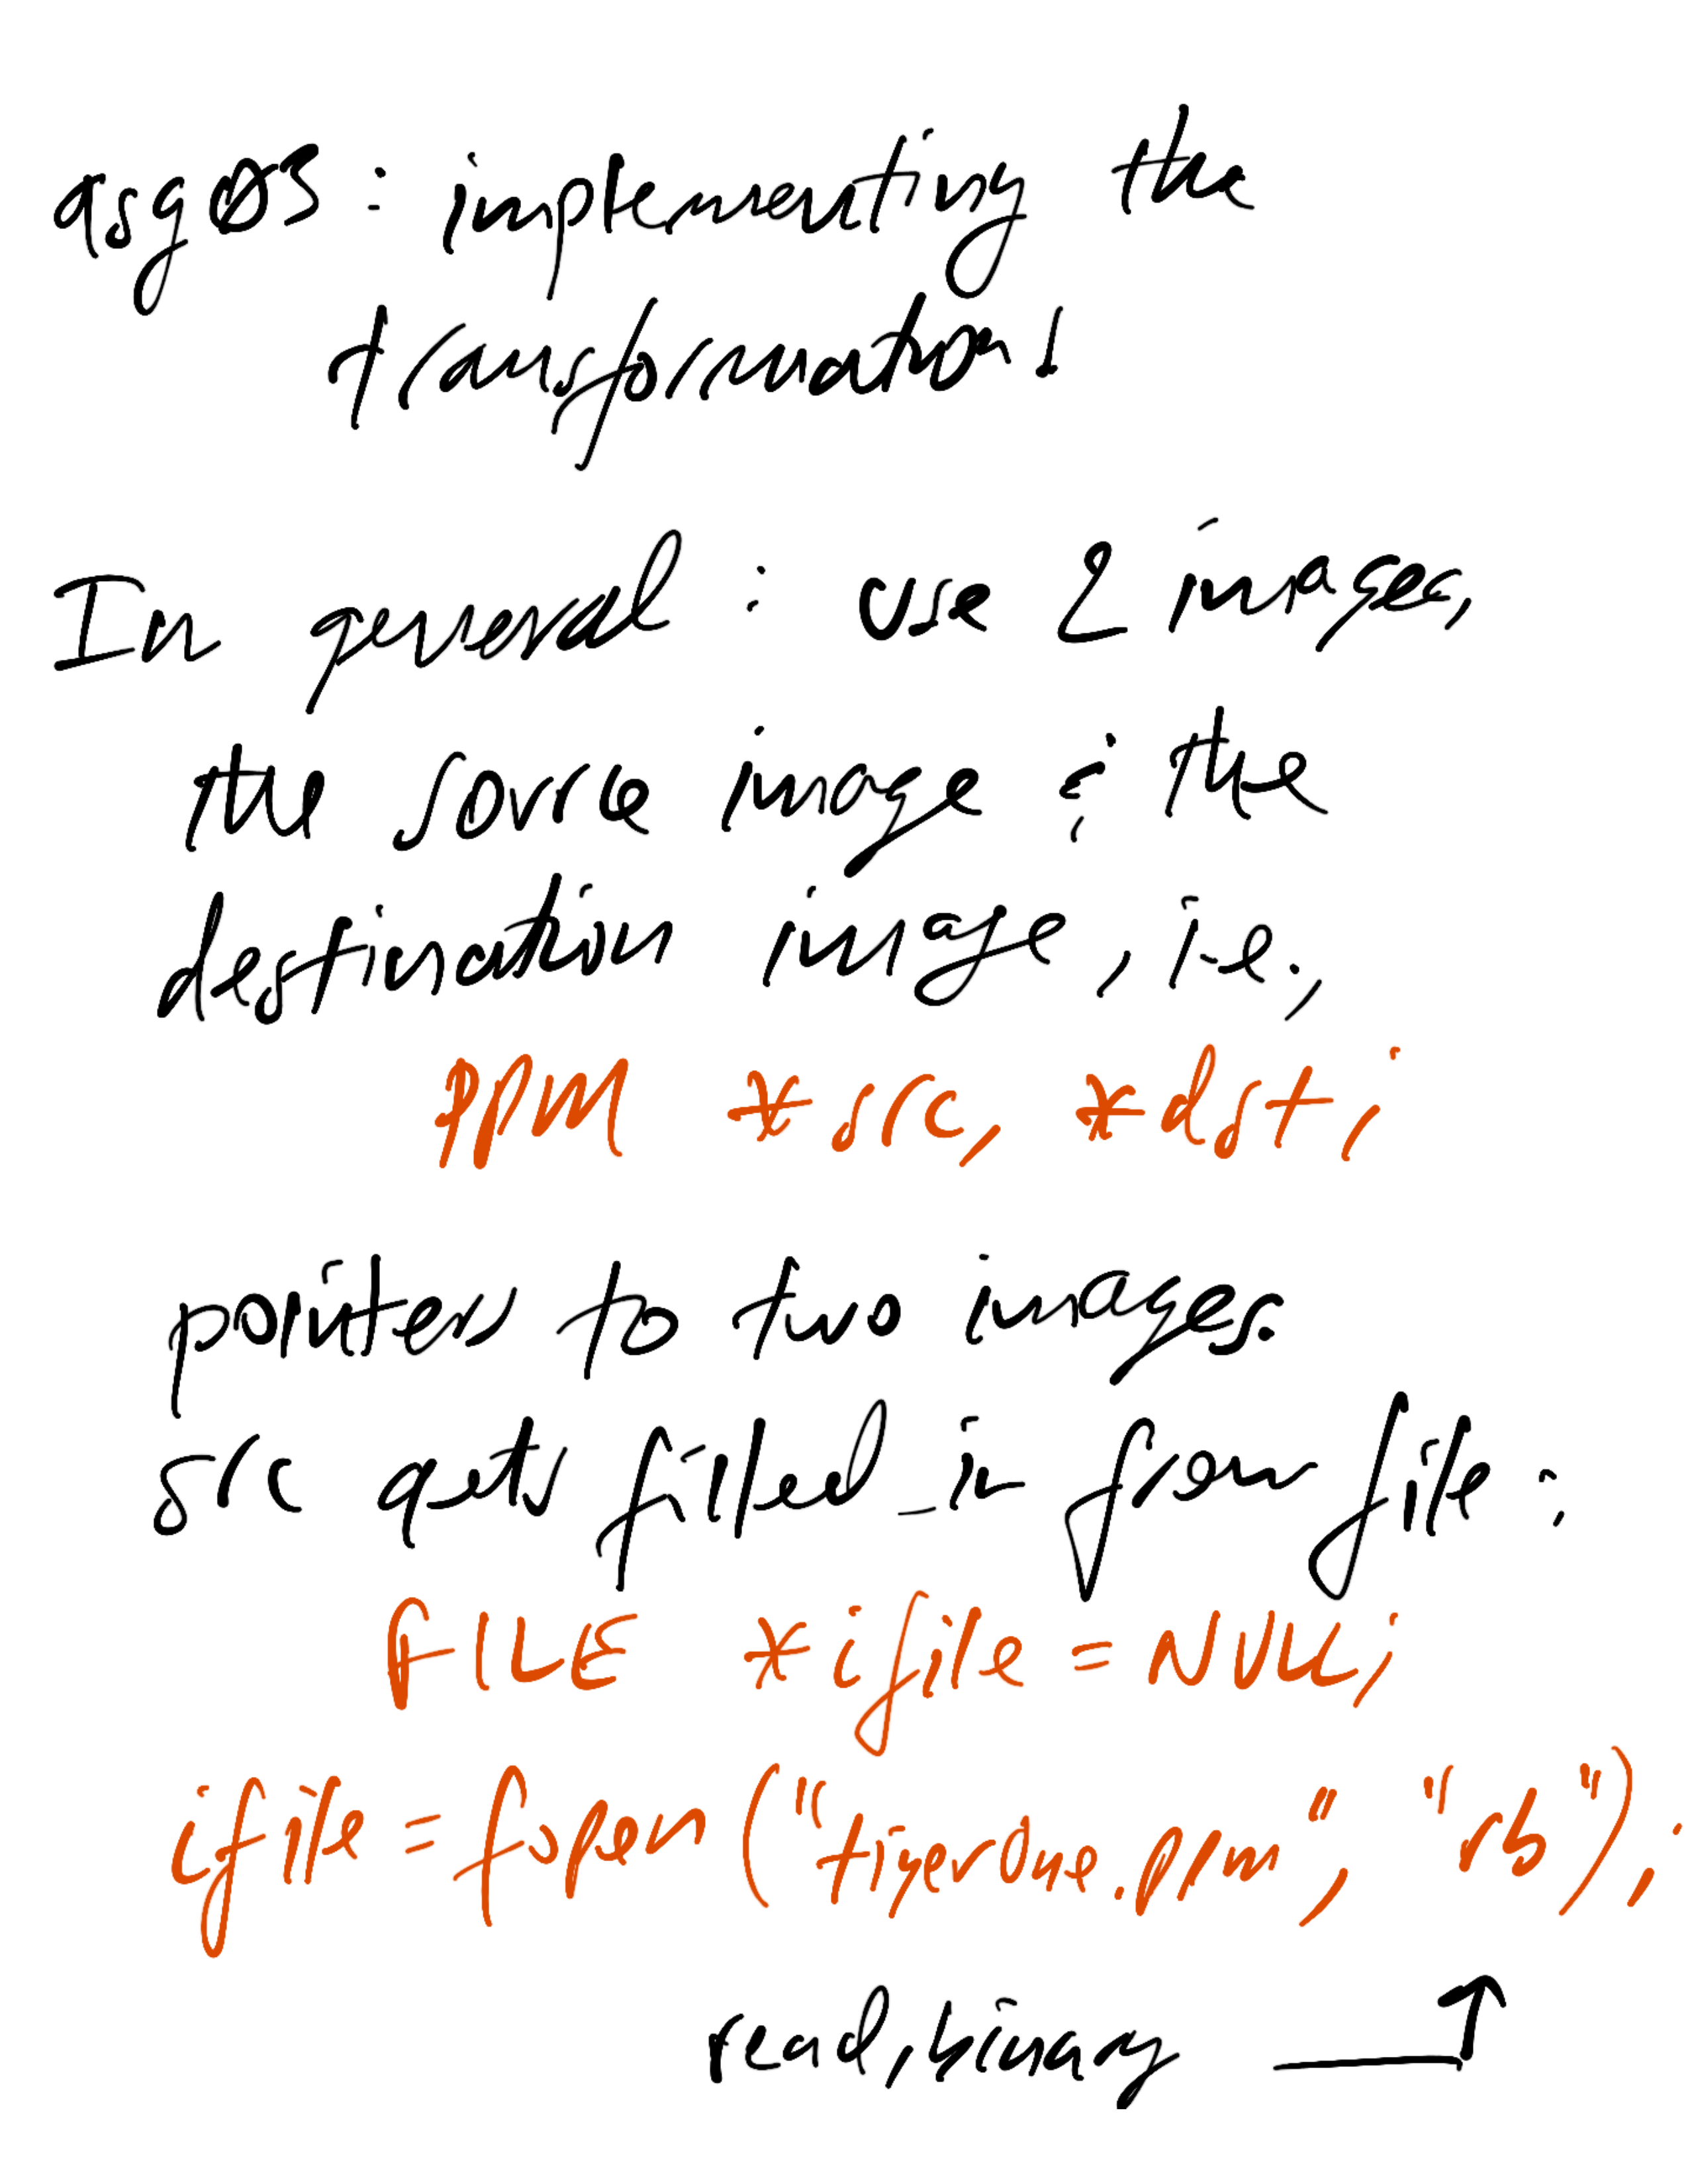 asg05: implementing the
transformation!
In general: use 2 images,
the source image & the
destination image, i.e.,
PPM *src, *dst;
pointers to two images.
src gets filled-in from file:
FILE *ifile = NULL;
ifile = fopen("tigerOne.ppm", "rb");
read, binary ↑